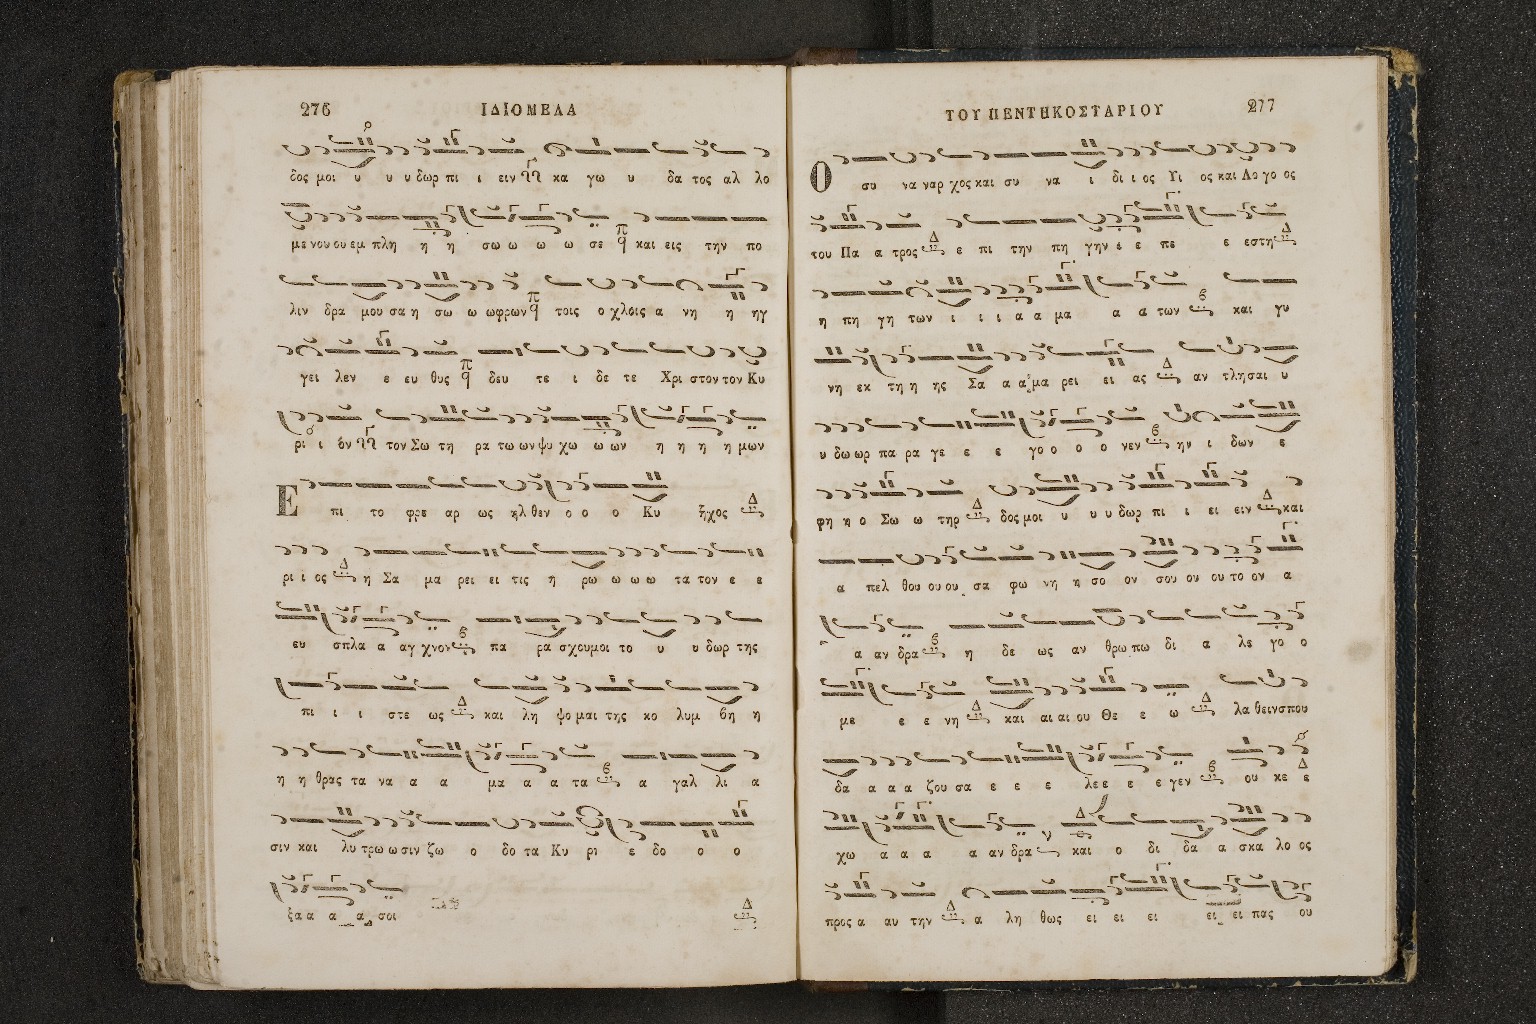 276
ΙΔΙΟΜΕΛΑ
δος μοι υ υ υ δωρ πι ι ειν κα γω υ δα τος αλ λο
με νου ου εμ πλη η η σω ω ω ω σε και εις την πο
λιν δρα μου σα η σω ω ωφρων τοις ο χλοις α νη η ηγ
γει λεν ε ευ θυς δευ τε ι δε τε Χρι στον τον Κυ
ρι ι ον τον Σω τη ρα τω ων ψυ χω ω ων η η η η μων
Ε πι το φρε αρ ως ηλ θεν ο ο ο Κυ ἦχος Δ
ρι ι ος Δ η Σα μα ρει ει τις η ρω ω ω ω τα τον ε ε
ευ σπλα α αγ χνον πα ρα σχου μοι το υ υ δωρ της
πι ι ι στε ως Δ και λη ψο μαι της κο λυμ βη η
η η θρας τα να α α μα α α τα α γαλ λι α
σιν και λυ τρω ω σιν ζω ο δο τα Κυ ρι ε δο ο ο
ξα α α α σοι Δ
ΤΟΥ ΠΕΝΤΗΚΟΣΤΑΡΙΟΥ
277
Ο συ να ναρ χος και συ να ι δι ι ος Υι ος και Λο γο ος
του Πα α τρος Δ ε πι την πη γην ε ε πε ε εστη Δ
η πη γη των ι ι ι α α μα α α των και γυ
νη εκ τη η ης Σα α α μα ρει ει ας Δ αν τλησαι υ
υ δω ωρ πα ρα γε ε ε γο ο ο ο νεν ην ι δων ε
φη η ο Σω ω τηρ Δ δος μοι υ υ υ δωρ πι ι ει ειν Δ και
α πελ θου ου ου σα φω νη η σο ον σου ον ου το ον α
α αν δρα η δε ως αν θρω πω δι α λε γο ο
με ε ε νη Δ και αι αι ου Θε ε ω Δ λα θειν σπου
δα α α α ζου σα ε ε ε λε ε ε ε γεν ου κε ε
χω α α α α αν δρα και ο δι δα α σκα λο ος
προς α αυ την Δ α λη θως ει ει ει ει ει πας ου